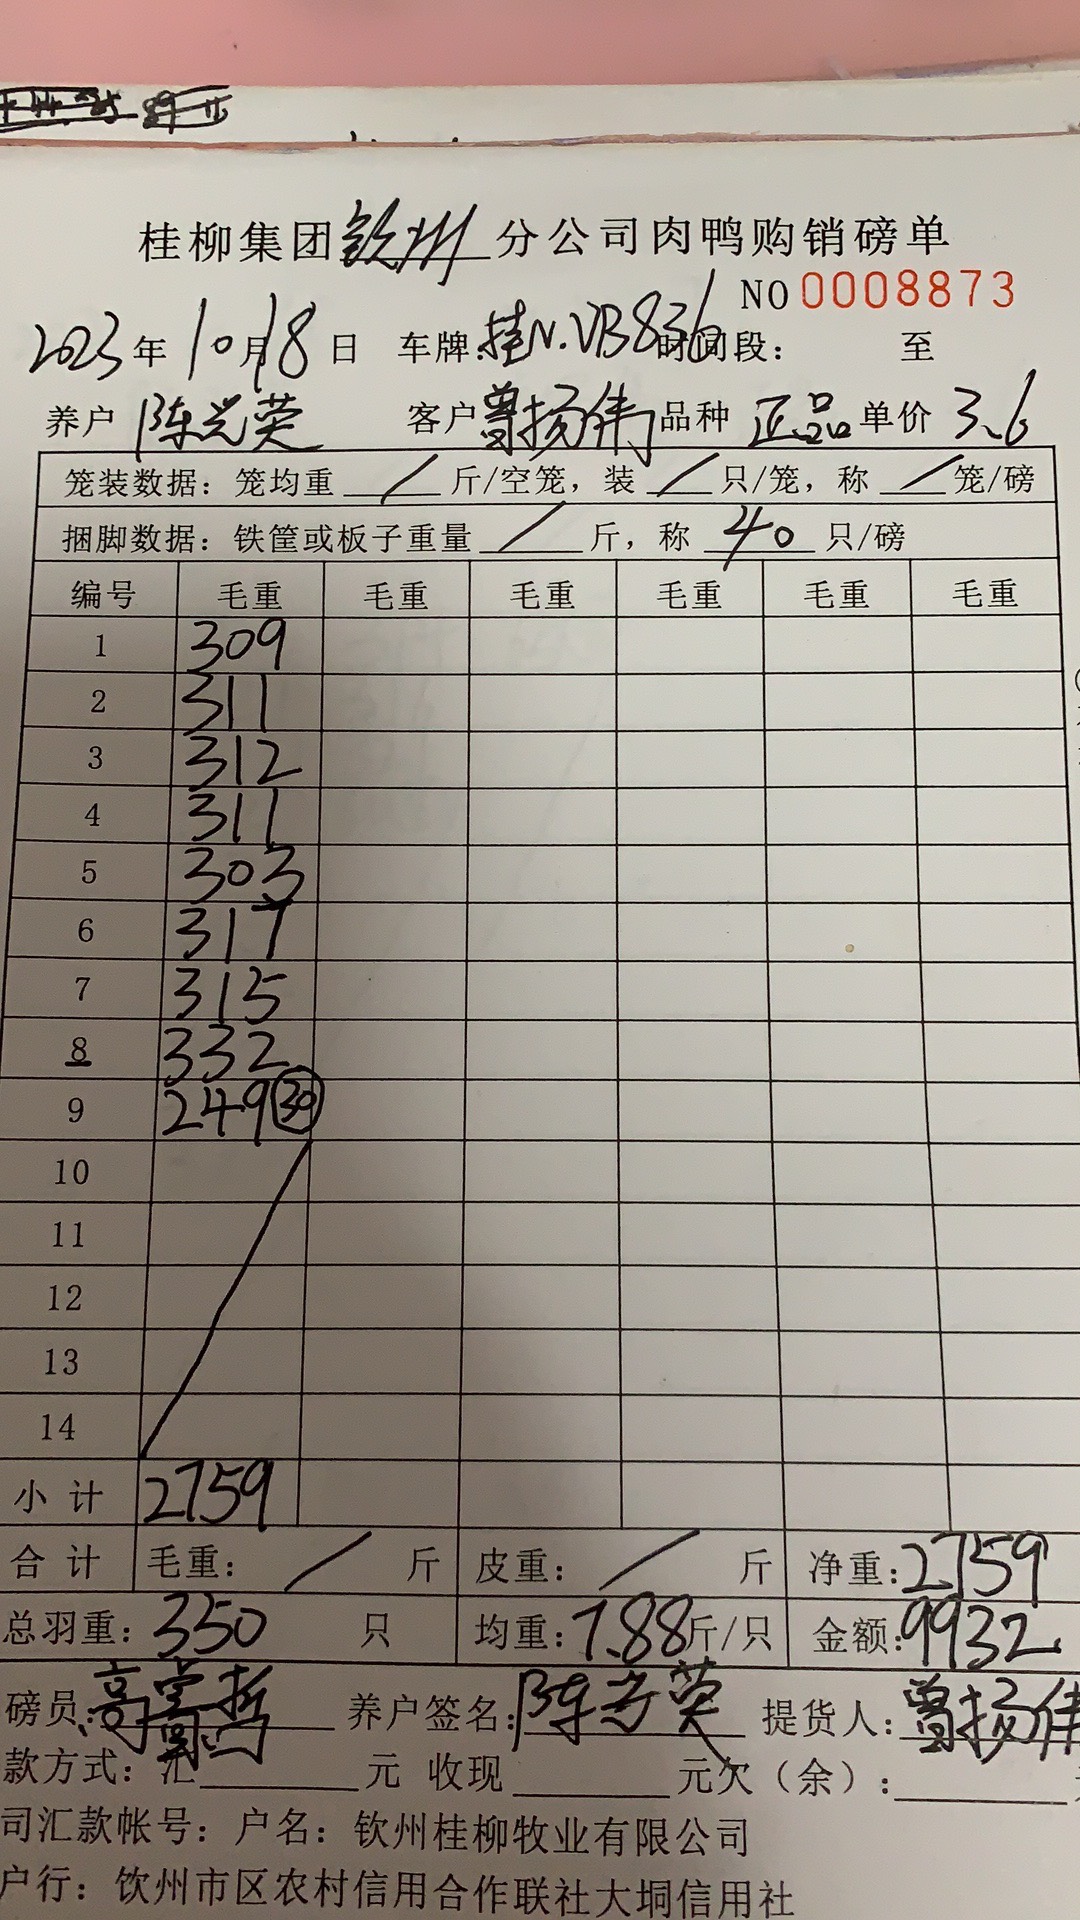 桂柳集团钦州分公司肉鸭购销磅单
NO 0008873
2023年10月18日 车牌:桂N.VB836 时间段: 至
养户 陈光英 客户 曾扬伟 品种 正品 单价 3.6
笼装数据: 笼均重 / 斤/空笼, 装 / 只/笼, 称 / 笼/磅
捆脚数据: 铁筐或板子重量 / 斤, 称 40 只/磅
编号 毛重 毛重 毛重 毛重 毛重 毛重
1 309
2 311
3 312
4 311
5 303
6 317
7 315
8 332
9 249 30
10
11
12
13
14
小计 2759
合计 毛重: / 斤 皮重: / 斤 净重: 2759
总羽重: 350 只 均重: 7.88 斤/只 金额: 9932
磅员: 高 养户签名: 陈光英 提货人: 曾扬伟
款方式: 汇 元 收现 元欠(余):
司汇款帐号: 户名: 钦州桂柳牧业有限公司
户行: 钦州市区农村信用合作联社大垌信用社